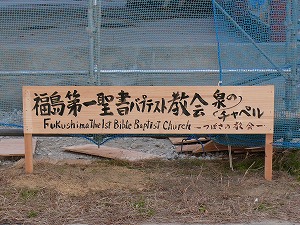 福島第一聖書バプテスト教会 泉のチャペル
Fukushima The 1st Bible Baptist Church －つばさの教会－